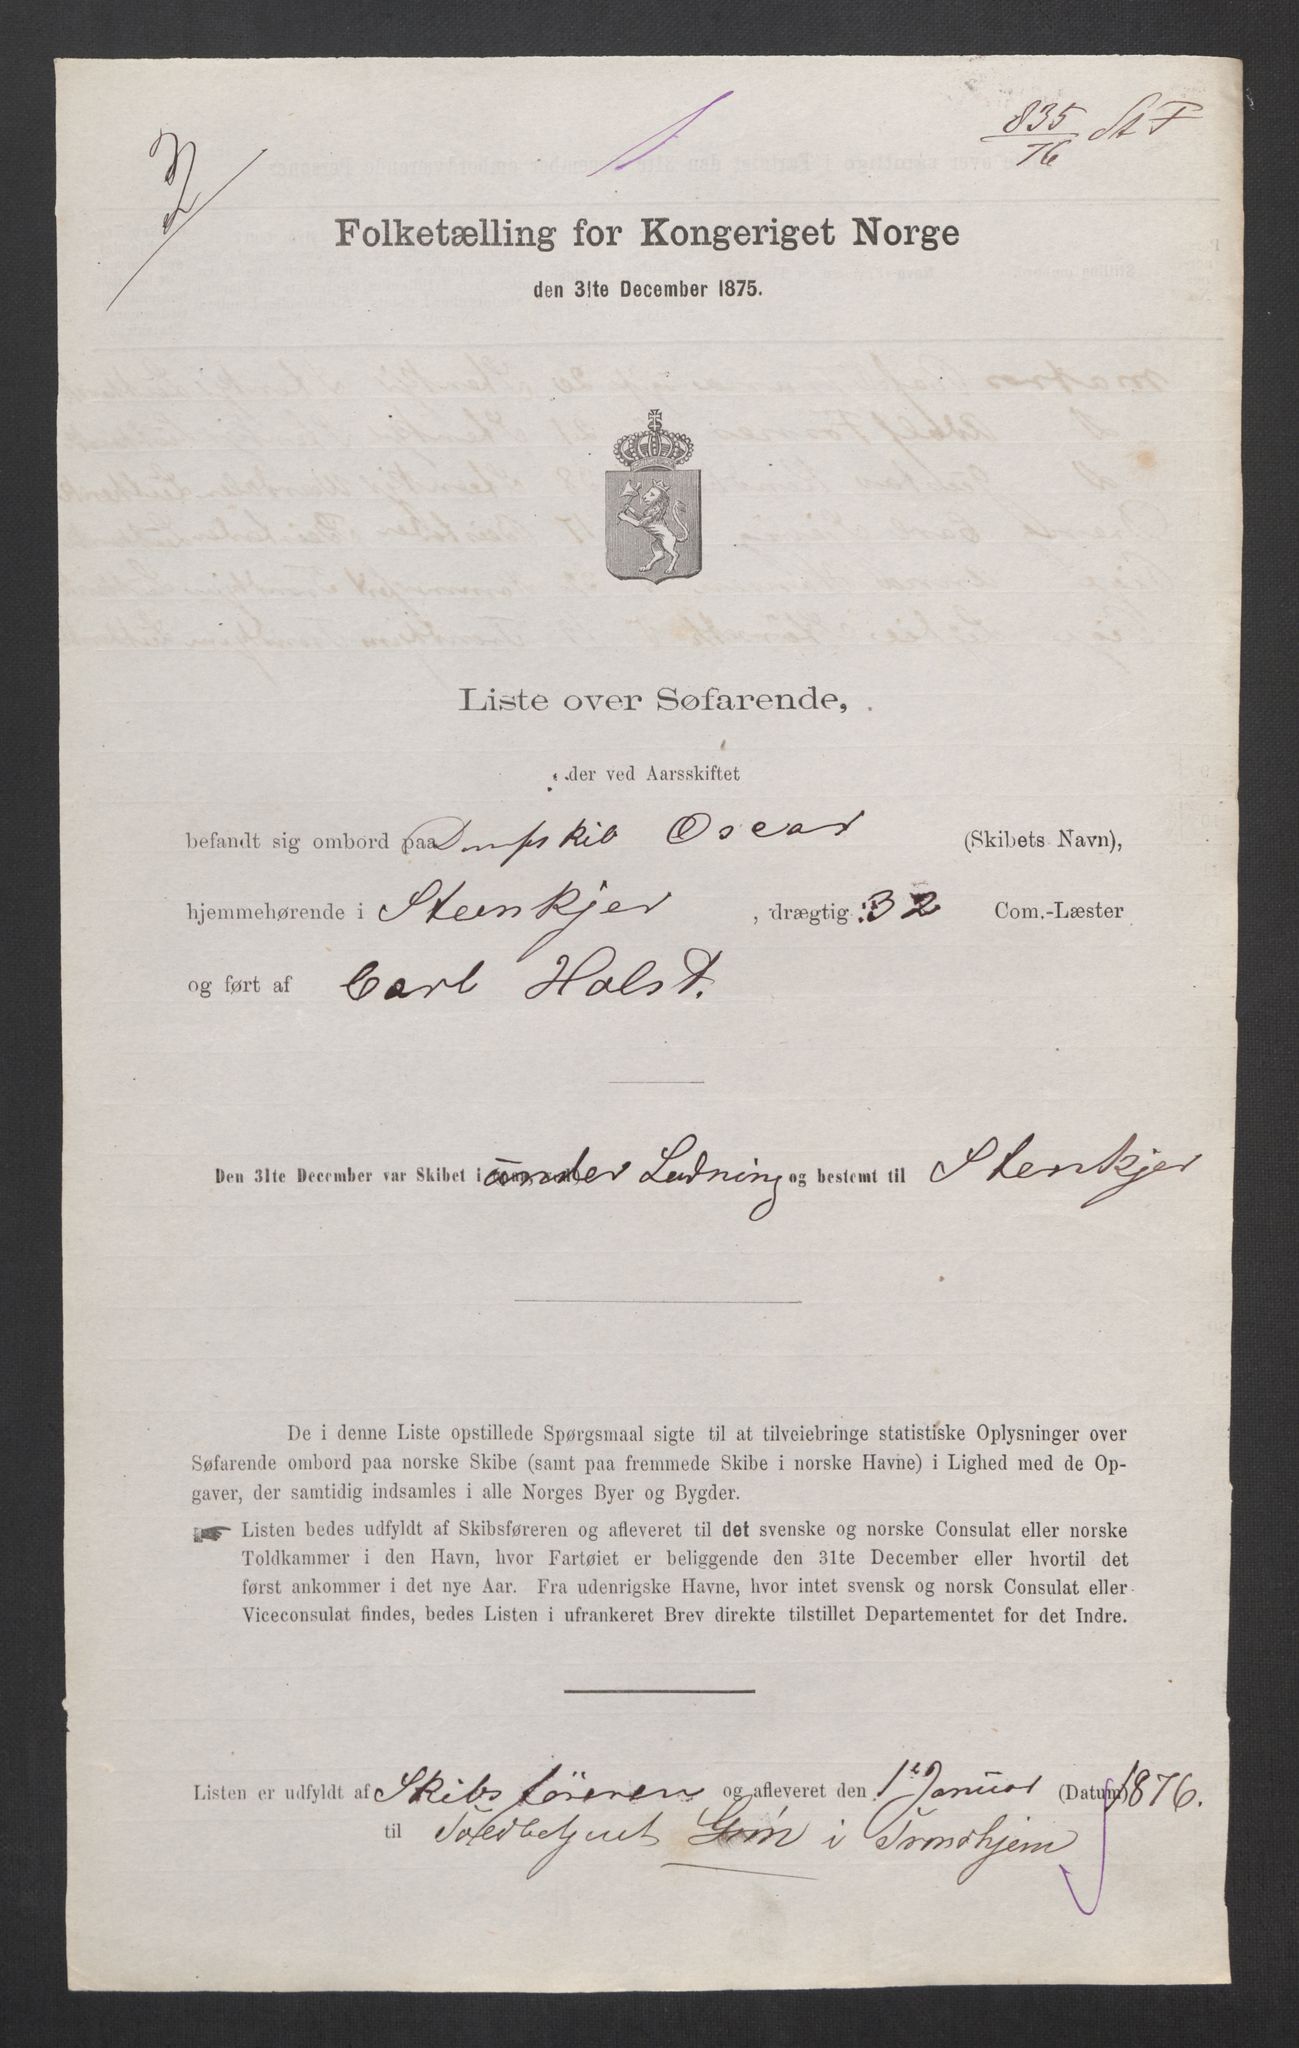 835/76 St F
Folketælling for Kongeriget Norge
den 31te December 1875.
Liste over Søfarende,
der ved Aarsskiftet
befandt sig ombord paa Dampskib Oscar (Skibets Navn),
hjemmehørende i Steenkjer, drægtig 32 Com.-Læster
og ført af Carl Holst.
Den 31te December var Skibet i under Ladning og bestemt til Stenkjer
De i denne Liste opstillede Spørgsmaal sigte til at tilveiebringe statistiske Oplysninger over
Søfarende ombord paa norske Skibe (samt paa fremmede Skibe i norske Havne) i Lighed med de Op-
gaver, der samtidig indsamles i alle Norges Byer og Bygder.
Listen bedes udfyldt af Skibsføreren og afleveret til det svenske og norske Consulat eller norske
Toldkammer i den Havn, hvor Fartøiet er beliggende den 31te December eller hvortil det
først ankommer i det nye Aar. Fra udenrigske Havne, hvor intet svensk og norsk Consulat eller
Viceconsulat findes, bedes Listen i ufrankeret Brev direkte tilstillet Departementet for det Indre.
Listen er udfyldt af Skibsføreren og afleveret den 1te Januar (Datum) 1876.
til Toldbetjent i Trondhjem